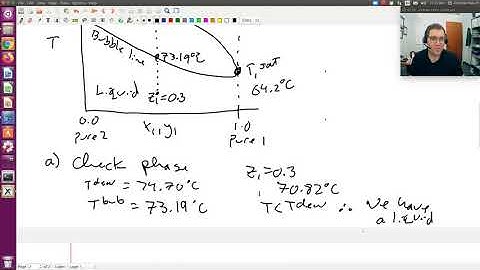 T
Bubble line
73.19°C
T₁ sat
64.2°C
Liquid
z₁=0.3
0.0
pure 2
x₁,y₁
1.0
pure 1
a) Check phase
z₁=0.3
T dew = 74.70°C
70.82°C
T bub = 73.19°C
T<T dew ∴ we have
a liquid